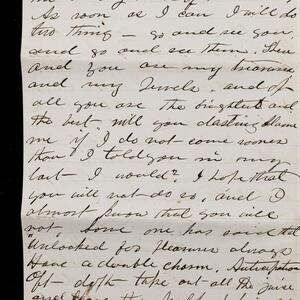 As soon as I can I will do
two thing – go and see you
and go and see them. They
and you are my treasures
and my Jewels. and of
all you are the brightest and
the best. will you darling blame
me if I do not come sooner
than I told you in my
last I would? I hope that
you will not do so, and I
almost know that you will
not. Some one has said that
"Unlooked for pleasures always
Have a double charm. Anticipation
Oft doth take out all the juice
and